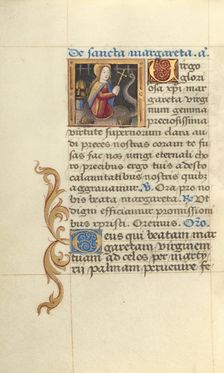 De sancta margareta. a.
Virgo
glorio
sa xpi mar
gareta virgi
num gemma
preciosissima
virtute supernorum clara au
di preces nostras coram te fu
sas fac nos iungi eternali choro
vt precibus ergo tuis a deposito
calamitatibus nostris quibus
aggrauamur. V. Ora pro no
bis beata margareta. R. Vt
digni efficiamur promissioni
bus xpristi. Oremus. Oro.
Deus qui beatam mar
garetam virginem
tuam ad celos per marty
rij palmam peruenire fe